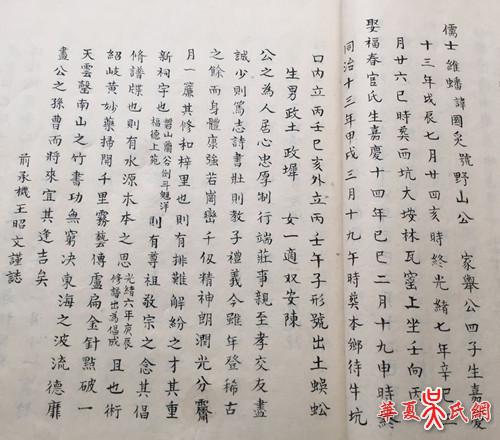 儒士維蟠諱國炙號野山公 家舉公四子生嘉慶
十三年戊辰七月廿四亥時終光緒七年辛巳二
月廿六巳時葬西坑大垵林瓦窰上坐壬向丙
娶福春官氏生嘉慶十四年己巳二月十九申時終
同治十三年甲戌三月十九午時葬本鄉待牛坑
口內立丙壬巳亥外立丙壬午子形號出土蜈蚣
生男政土 政墀 女一適双安陳
公之為人居心忠厚制行端莊事親至孝交友盡
誠少則篤志詩書壯則教子禮義今雖年登稀古
之餘而身體康強若崗巒千仭精神朗潤光分霽
月一簾其修和梓里也則有排難解紛之才其重
新祠宇也 則有尊祖敬宗之念其倡
修譜牒也則有水源木本之思光緒六年庚辰修譜出為倡成且也術
紹岐黃妙藥掃開千里霧藝傳盧扁金針點破一
天雲罄南山之竹書功無窮決東海之波流德靡
盡公之孫曹而將來宜其逢吉矣
前承機王昭文謹誌
華夏吳氏網